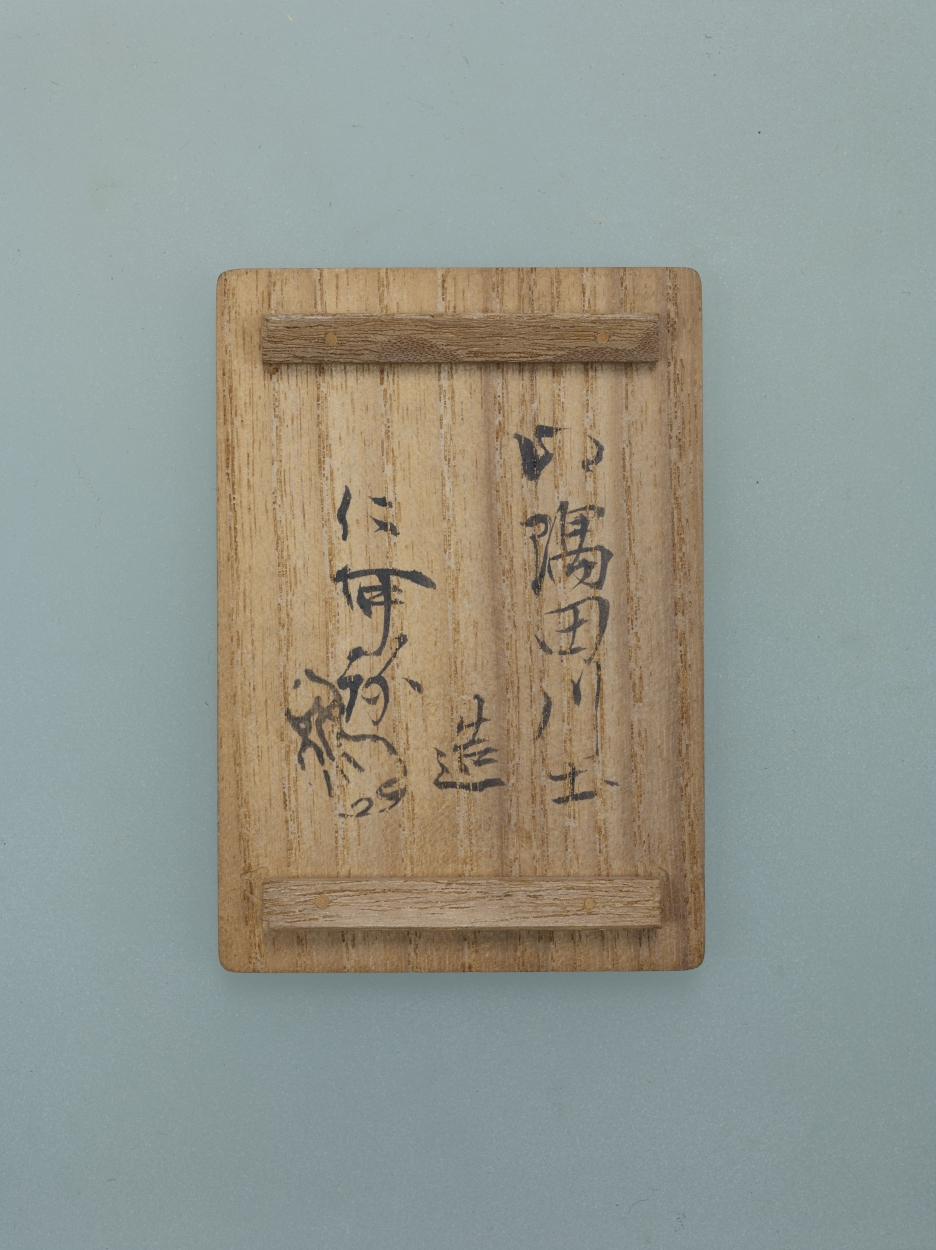 以隅田川土
造
仁阿弥